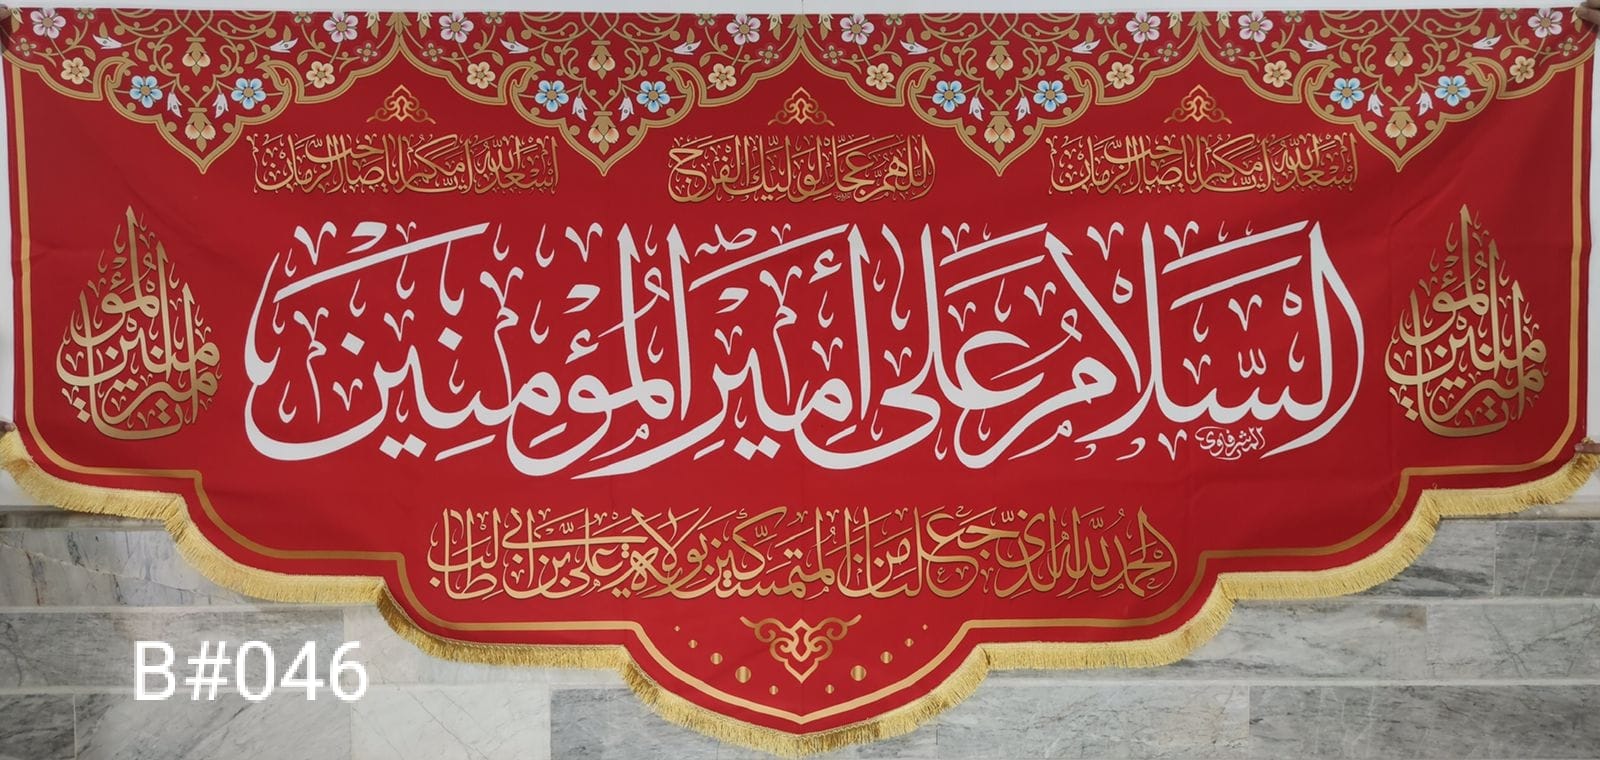 أسعد الله أيامكم يا صاحب الزمان
اللهم عجل لوليك الفرج
أسعد الله أيامكم يا صاحب الزمان
السَّلَامُ عَلَى أَمِيرِ الْمُؤْمِنِينَ
يا أمير المؤمنين
يا أمير المؤمنين
المشرفاوي
الحمد لله الذي جعلنا من المتمسكين بولاية علي بن أبي طالب
B#046